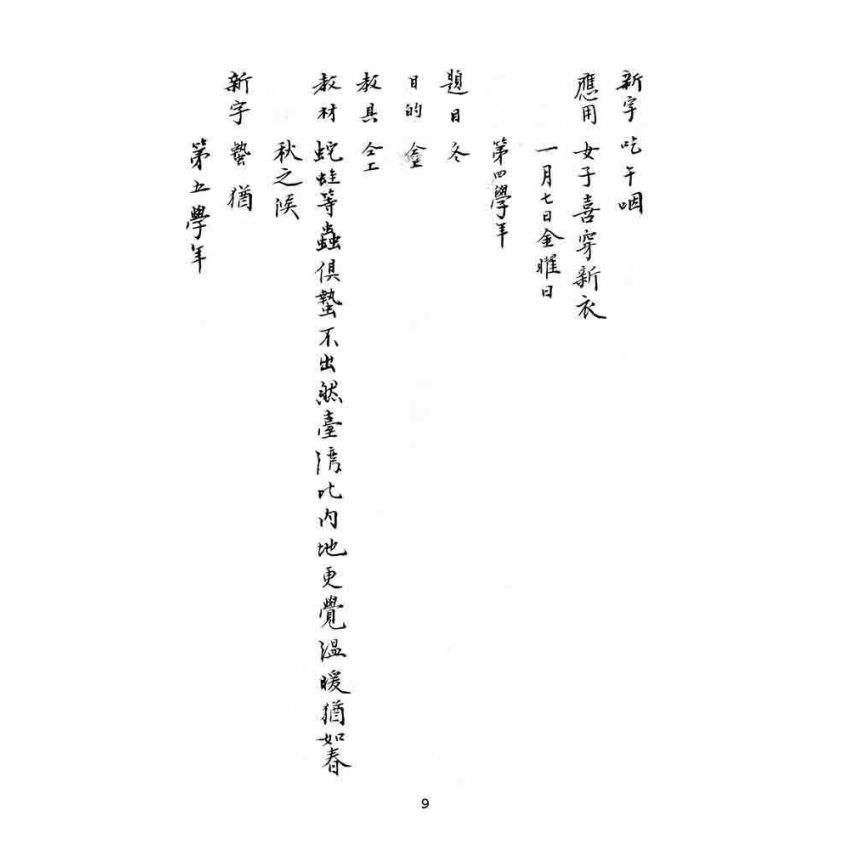 新字 吃 午 咽
應用 女子喜穿新衣
一月七日金曜日
第四學年
題目 冬
目的 仝
教具 仝上
教材 蛇蛙等蟲俱蟄不出然臺灣比內地更覺溫暖猶如春
秋之候
新字 蟄 猶
第五學年
9